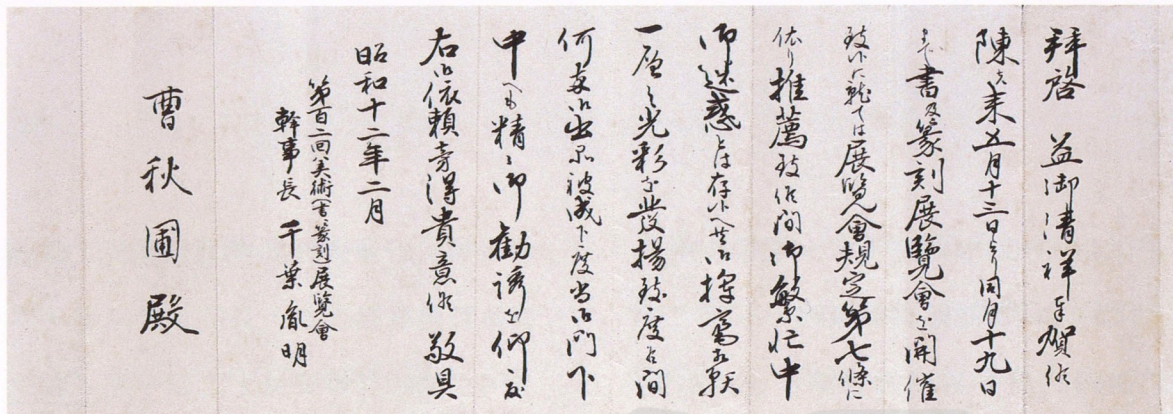 拝啓 益御清祥奉賀候
陳者来五月十三日より同月十九日
まで書及篆刻展覧會を開催
致候に就ては展覧會規定第七條に
依り推薦致候間御繁忙中
御迷惑とは存候へ共御揮毫相願
一層之光彩を發揚致度候間
何卒御出品被成下度尚御門下
中へも精々御勧誘を仰度
右御依頼旁得貴意候 敬具
昭和十二年二月
第百二回美術(書篆刻)展覧會
幹事長 千葉胤明
曹秋圃殿